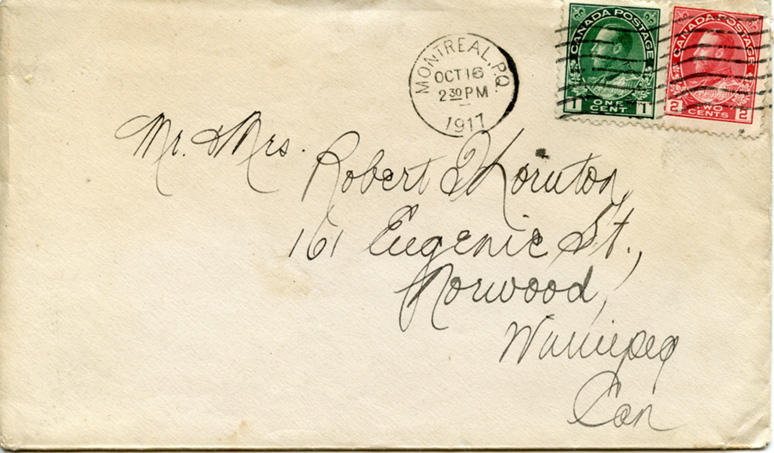 MONTREAL, P.Q.
OCT 16
2 30 PM
1917
CANADA POSTAGE
1 ONE CENT 1
CANADA POSTAGE
2 TWO CENTS 2
Mr. & Mrs. Robert Thornton,
161 Eugenie St.,
Norwood,
Winnipeg
Can